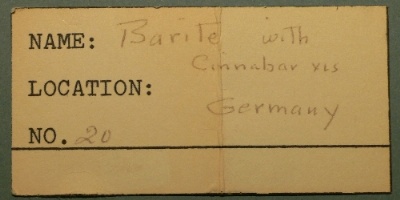 NAME: Barite with
Cinnabar xls
LOCATION:
Germany
NO. 20